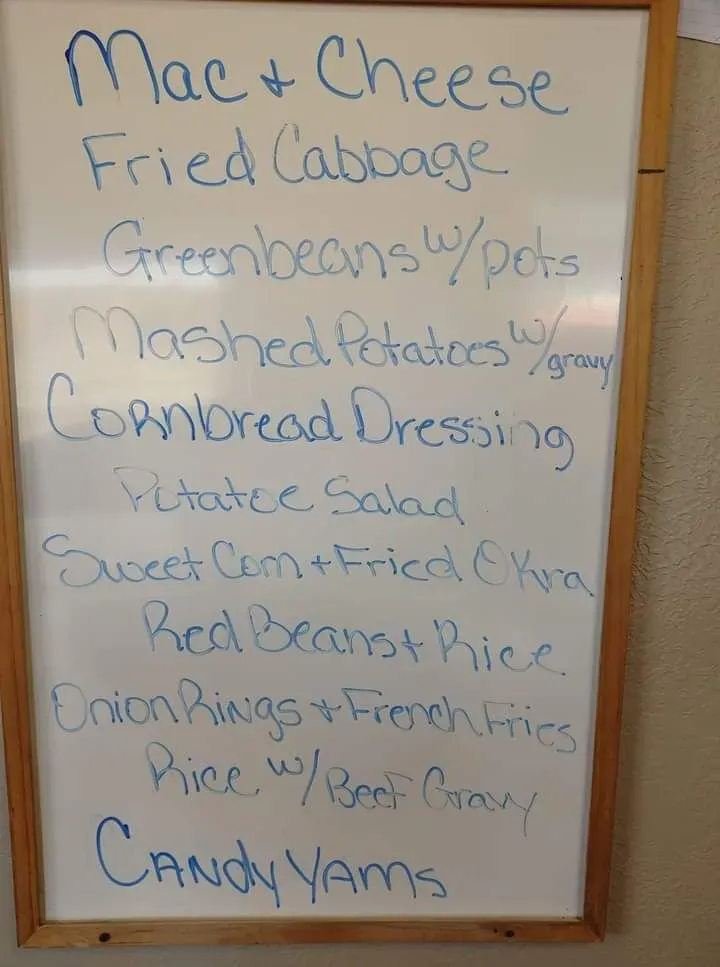 Mac + Cheese
Fried Cabbage
Greenbeans w/pots
Mashed Potatoes w/gravy
Cornbread Dressing
Potatoe Salad
Sweet Corn + Fried Okra
Red Beans + Rice
Onion Rings + French Fries
Rice w/Beef Gravy
Candy Yams